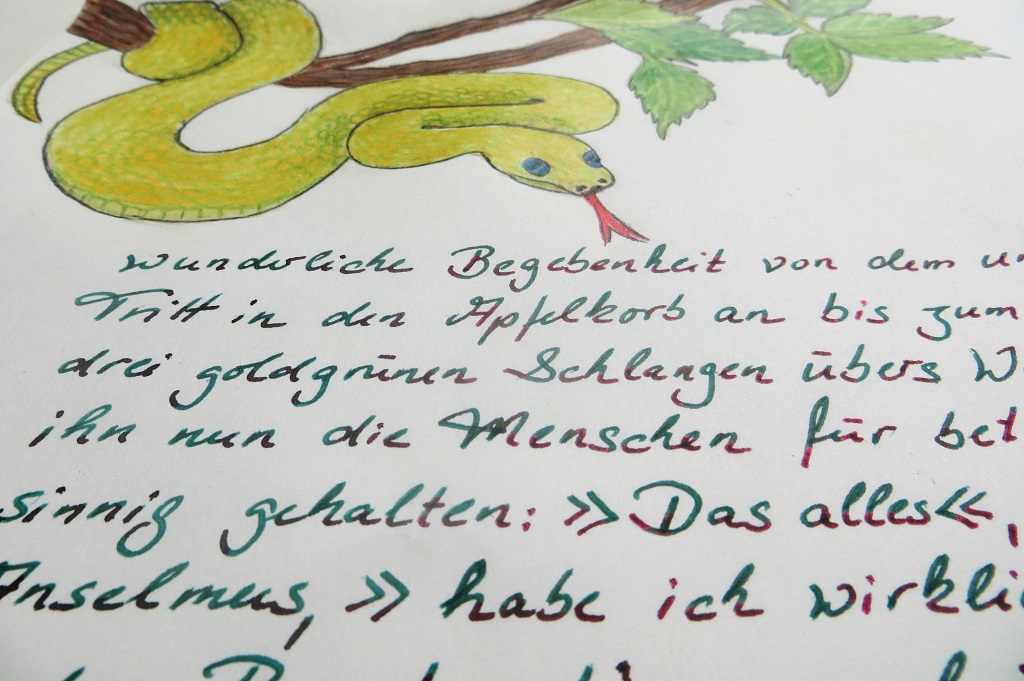 wunderliche Begebenheit von dem
Tritt in den Apfelkorb an bis zum
drei goldgrünen Schlangen übers
ihn nun die Menschen für
sinnig gehalten: »Das alles«,
Anselmus, »habe ich